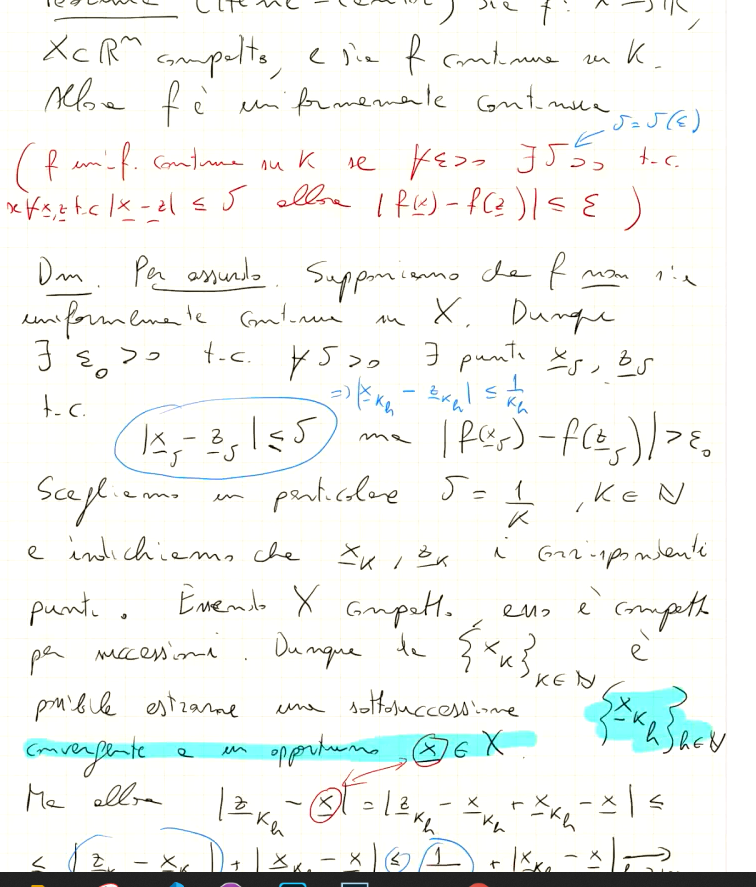 (Heine - Cantor) sia f: X → ℝ,
X ⊂ ℝⁿ compatto, e sia f continua su K.
Allora f è uniformemente continua
δ = δ(ε)
( f unif. continua su K se ∀ε>0 ∃δ>0 t-c.
∀x,z t.c |x - z| ≤ δ allora |f(x) - f(z)| ≤ ε )
Dim. Per assurdo. Supponiamo che f non sia
uniformemente continua su X. Dunque
∃ ε₀ >0 t-c. ∀δ>0 ∃ punti x_δ, z_δ
t-c. => |x_{k_h} - z_{k_h}| ≤ 1/k_h
|x_δ - z_δ| ≤ δ ma |f(x_δ) - f(z_δ)| > ε₀
Scegliamo in particolare δ = 1/K , K ∈ ℕ
e indichiamo che x_K, z_K i corrispondenti
punti. Essendo X compatto, esso è compatto
per successioni. Dunque da {x_K}_{K∈ℕ} è
possibile estrarne una sottosuccessione {x_{K_h}}_{h∈ℕ}
convergente a un opportuno x ∈ X.
Ma allora |z_{K_h} - x| = |z_{K_h} - x_{K_h} + x_{K_h} - x| ≤
≤ |z_{K_h} - x_{K_h}| + |x_{K_h} - x| ≤ 1 + |x_{K_h} - x| →